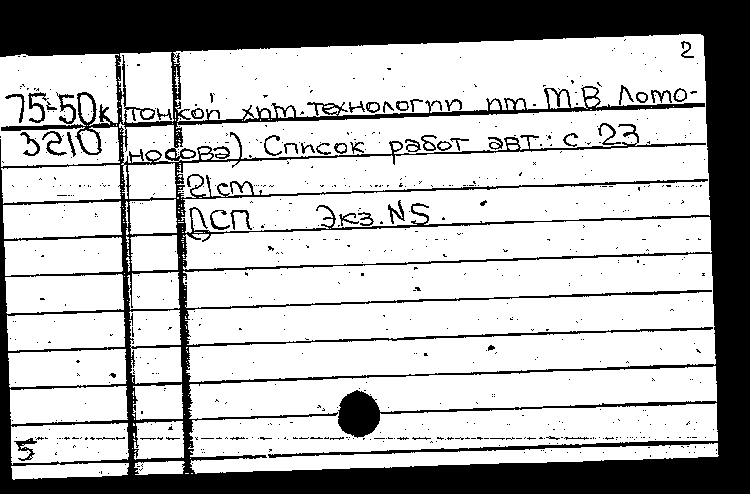 2
75-50к тонкой хим. технологии им. М.В. Ломо-
3210 носова). Список работ авт.: с. 23
21 см.
ДСП. Экз. N5.
5